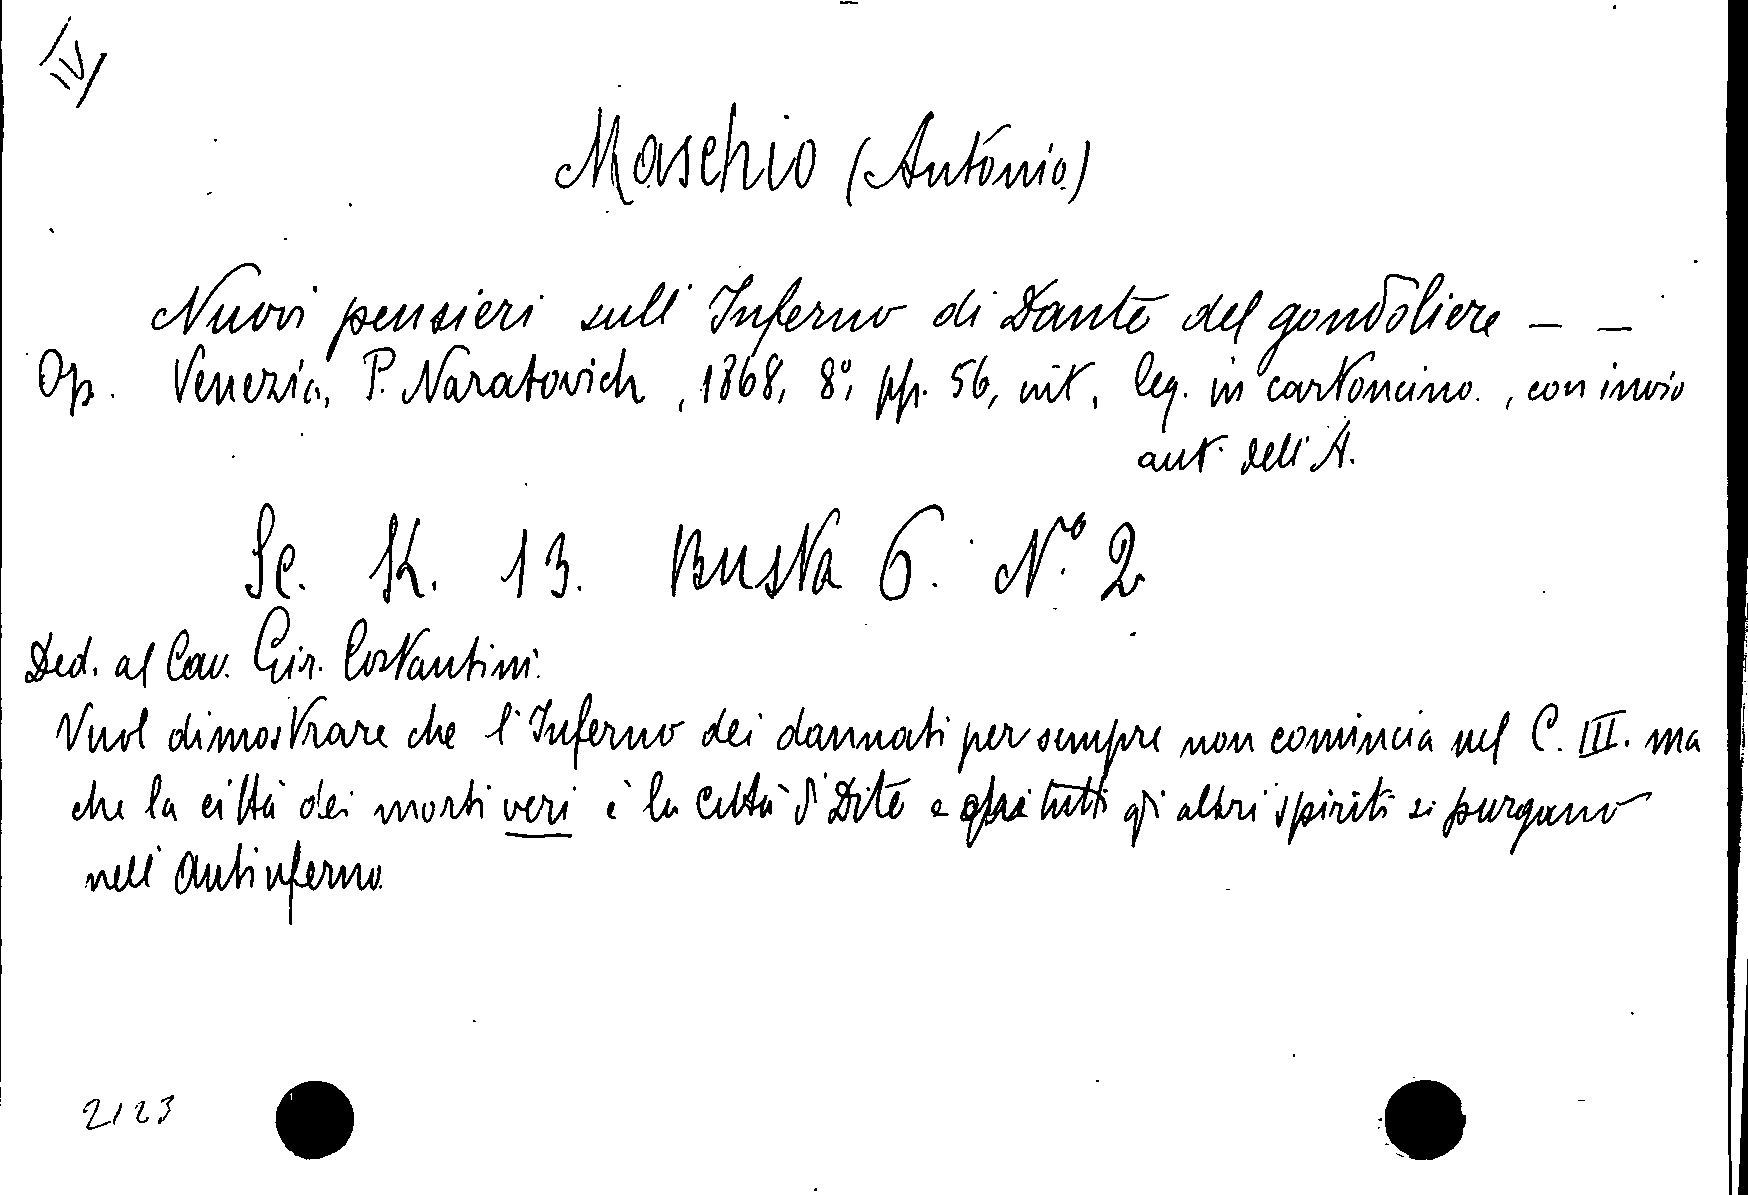 IV
Maschio (Antonio)
Nuovi pensieri sull'Inferno di Dante del gondoliere — —
Op. Venezia, P. Naratovich, 1868, 8°, pp. 56, int., leg. in cartoncino, con invio
aut. dell'A.
Sc. K. 13. Busta 6. N.° 2
Ded. al Cav. Gir. Costantini.
Vuol dimostrare che l'Inferno dei dannati per sempre non comincia nel C. III. ma
che la città dei morti veri è la città di Dite e tutti gli altri spiriti si purgano
nell'Antinferno.
2123